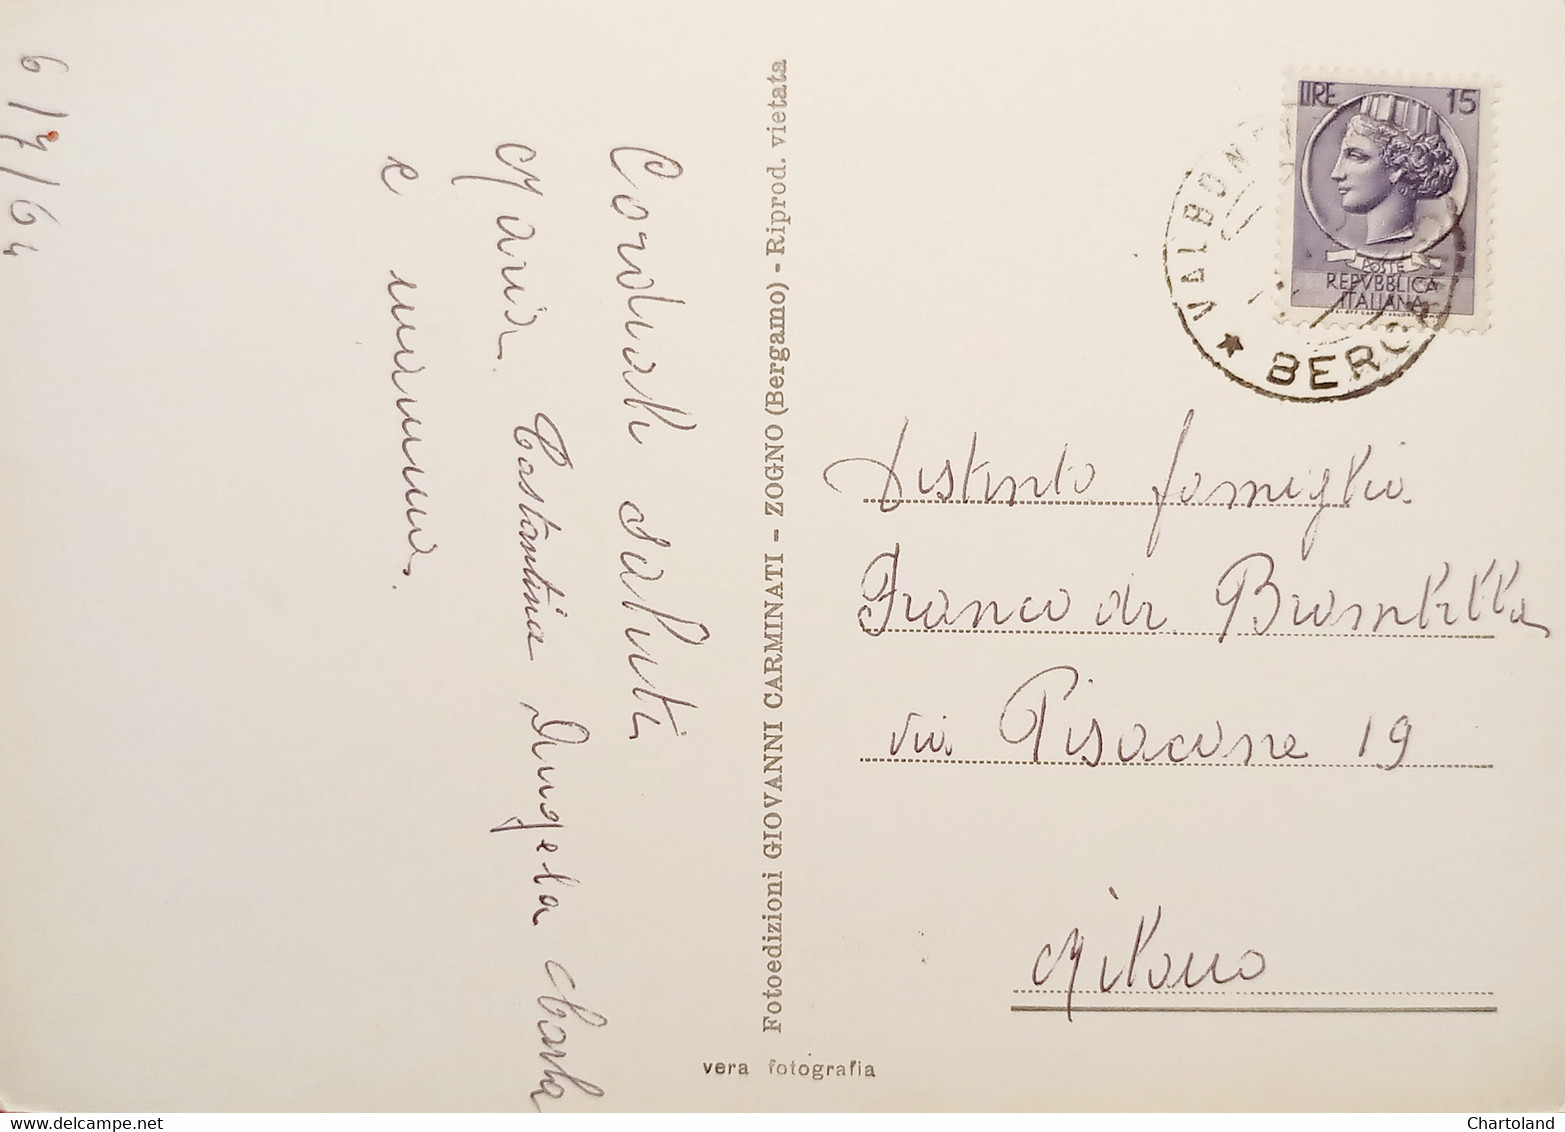 6/7/64
Cordiali saluti
Maria Costantina Angela Carla
e mamma.
Fotoedizioni GIOVANNI CARMINATI - ZOGNO (Bergamo) - Riprod. vietata
vera fotografia
LIRE 15
POSTE
REPVBBLICA
ITALIANA
VALBON
★ BERGAMO
Distinta famiglia
Franco di
via Pisacane 19
Milano
Chartoland